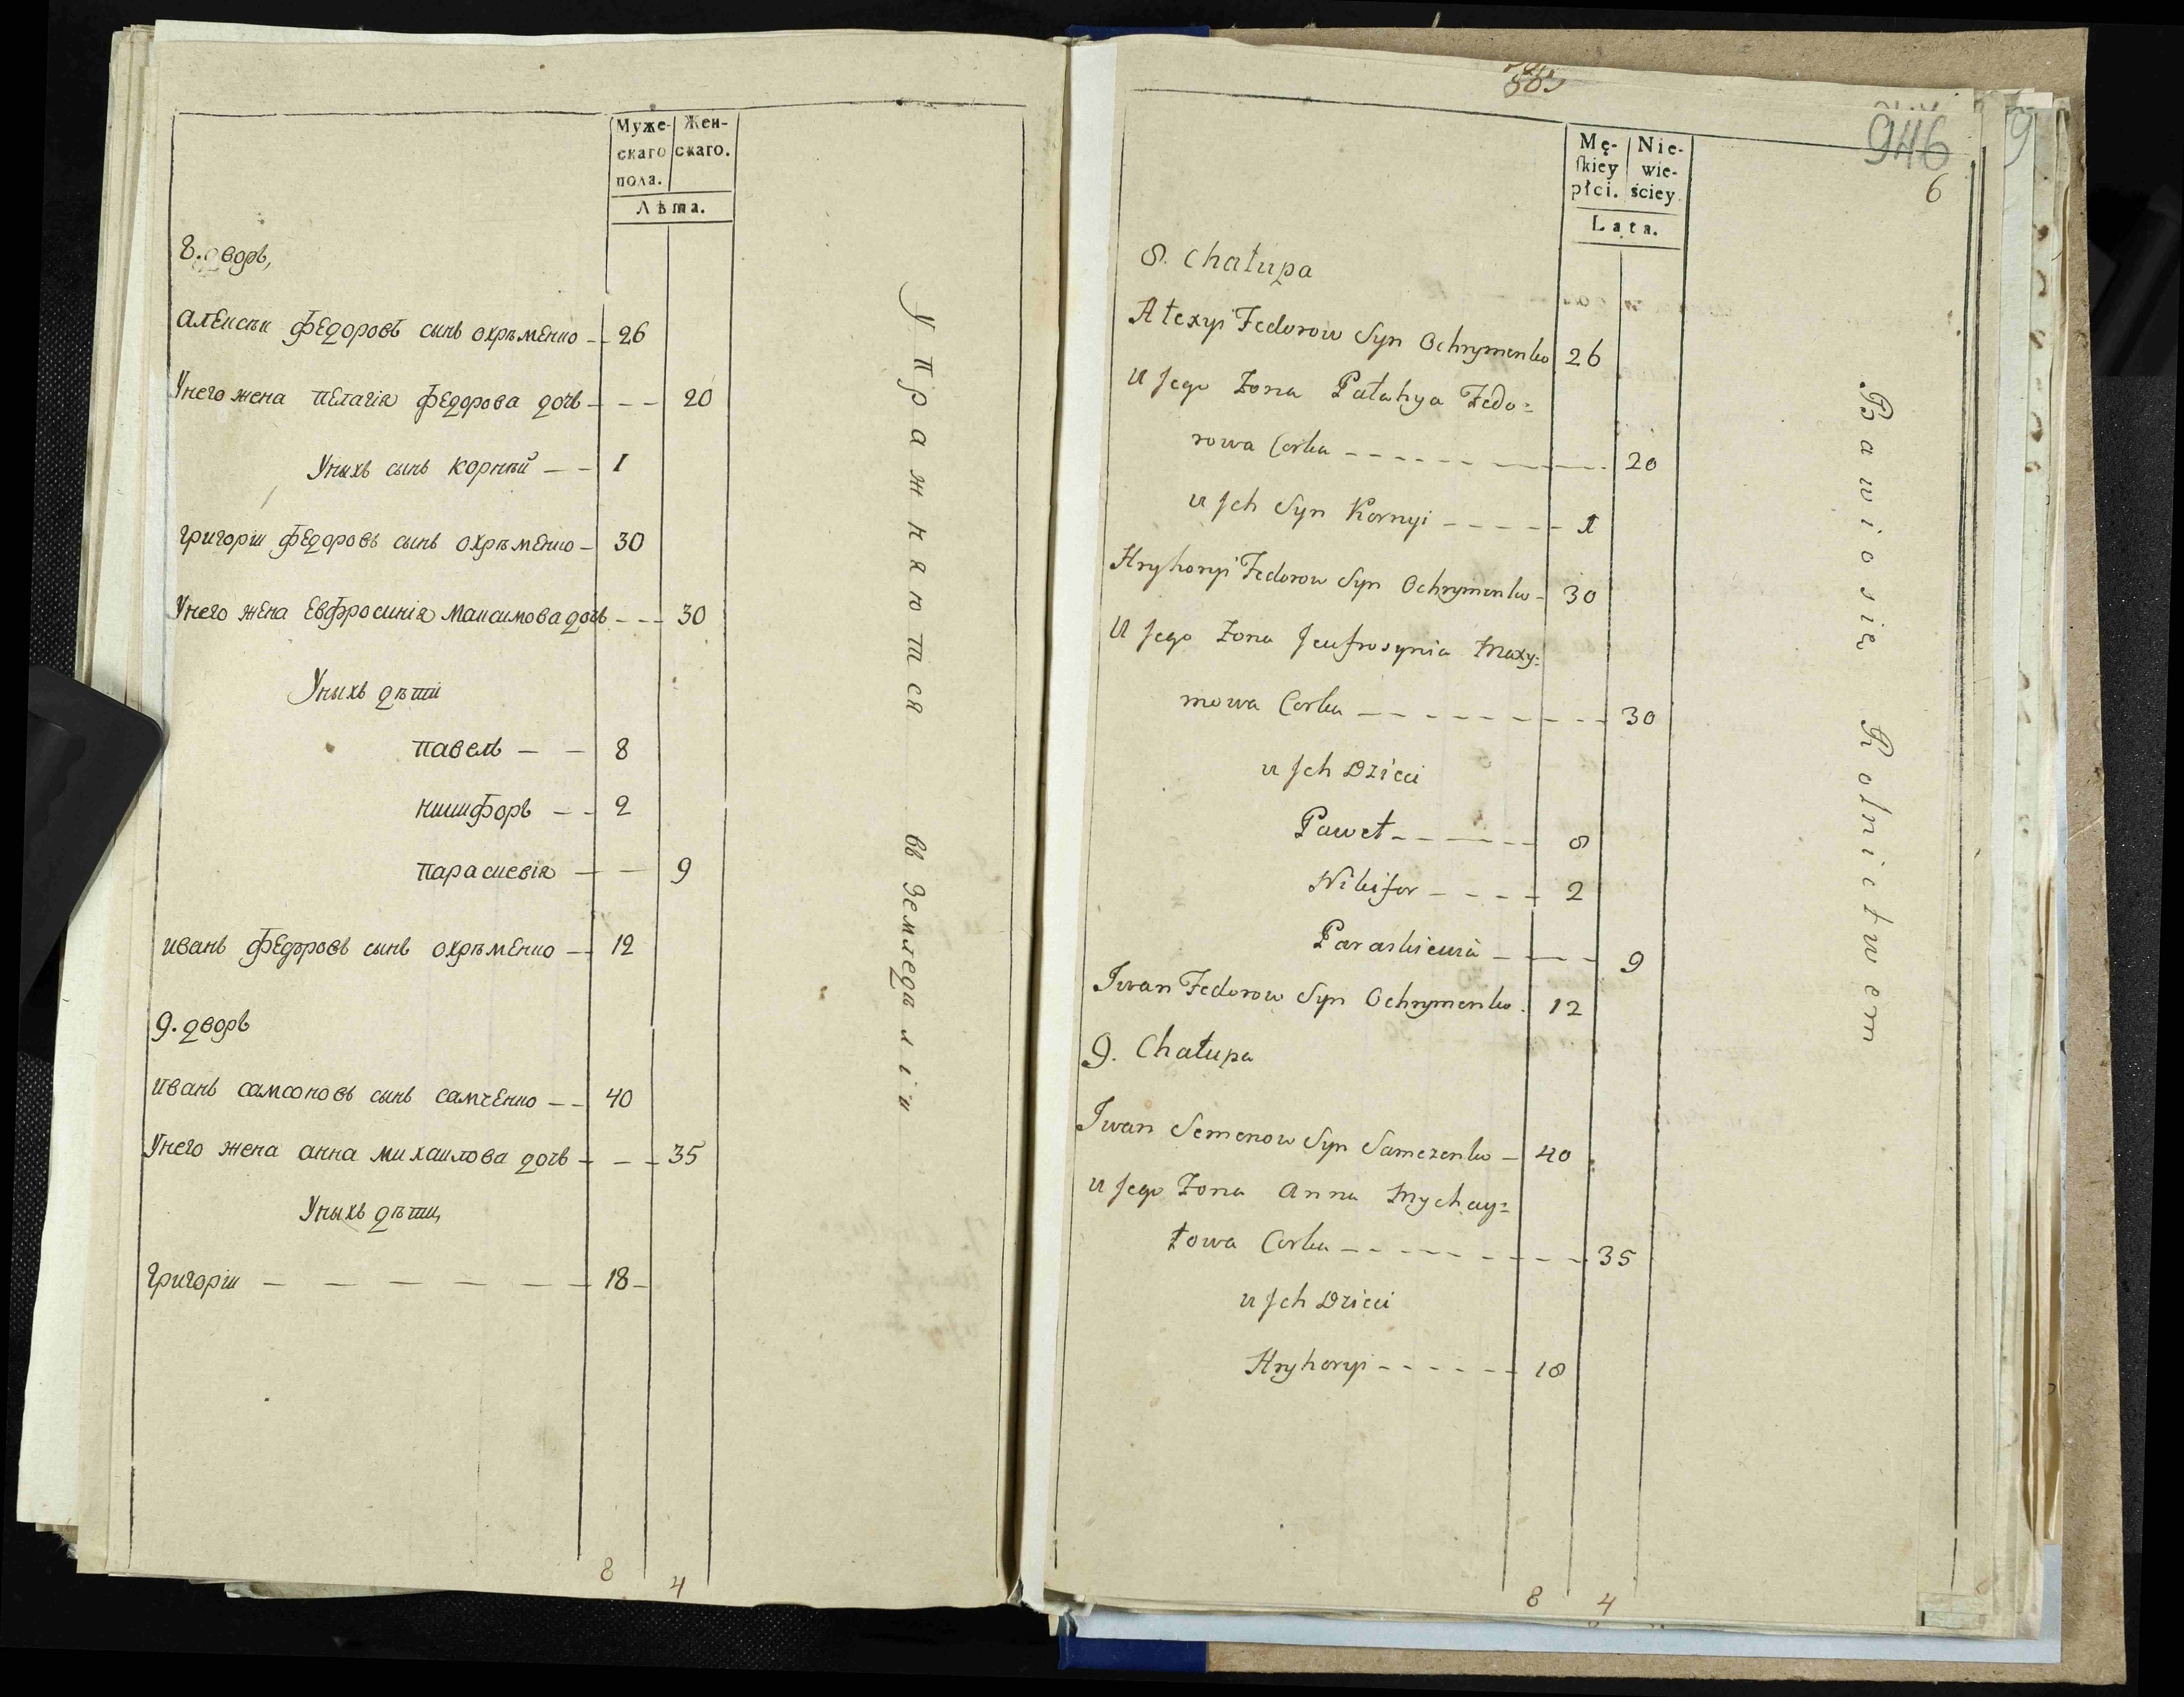 Муже- Жен-
скаго скаго.
пола.
Лѣта.
8. дворъ,
Алексѣи Федоровъ сынъ Охрѣменко — 26
Унего жена Пелагія Федорова дочь — — — 20
Уныхъ сынъ Корнѣй — — 1
Григоріи Федоровъ сынъ Охрѣменко — 30
Унего жена Евфросинія Максимова дочь — — — 30
Уныхъ дѣти
Павелъ — — 8
Никифоръ — — 2
Параскевія — — 9
Иванъ Федоровъ сынъ Охрѣменко — 12
9. дворъ
Иванъ Самсоновъ сынъ Самченко — — 40
Унего жена Анна Михаилова дочь — — — 35
Уныхъ дѣти,
Григоріи — — — — — — 18 —
8 4
Упражняются въ Земледѣліи
946
6
Mę- Nie-
ſkiey wie-
płci. ściey
Lata.
8. Chałupa
Ałexyi Fedorow Syn Ochrymenko 26
U Jego Żona Pałahya Fedo=
rowa Corka — — — — — — — 20
u Jch Syn Kornyi — — — — — 1
Hryhoryi Fedorow Syn Ochrymenko — 30
U Jego Żona Jeufrosynia Maxy=
mowa Corka — — — — — — — — 30
u Jch Dzieci
Paweł — — — — — 8
Nikifor — — — — 2
Paraskiewia — — — 9
Iwan Fedorow Syn Ochrymenko. 12
9. Chałupa
Iwan Semenow Syn Samczenko — 40
u Jego Żona Anna Mychay=
łowa Corka — — — — — — — — 35
u Jch Dzieci
Hryhoryi — — — — — — 18
8 4
Bawiosię Rolnictwem